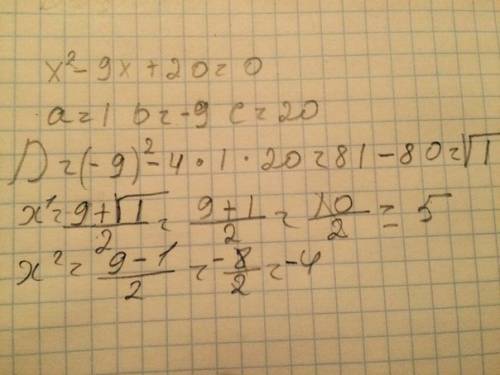 x²-9x+20=0
a=1 b=-9 c=20
D=(-9)²-4·1·20=81-80=√1
x¹=9+√1/2=9+1/2=10/2=5
x²=9-1/2=-8/2=-4